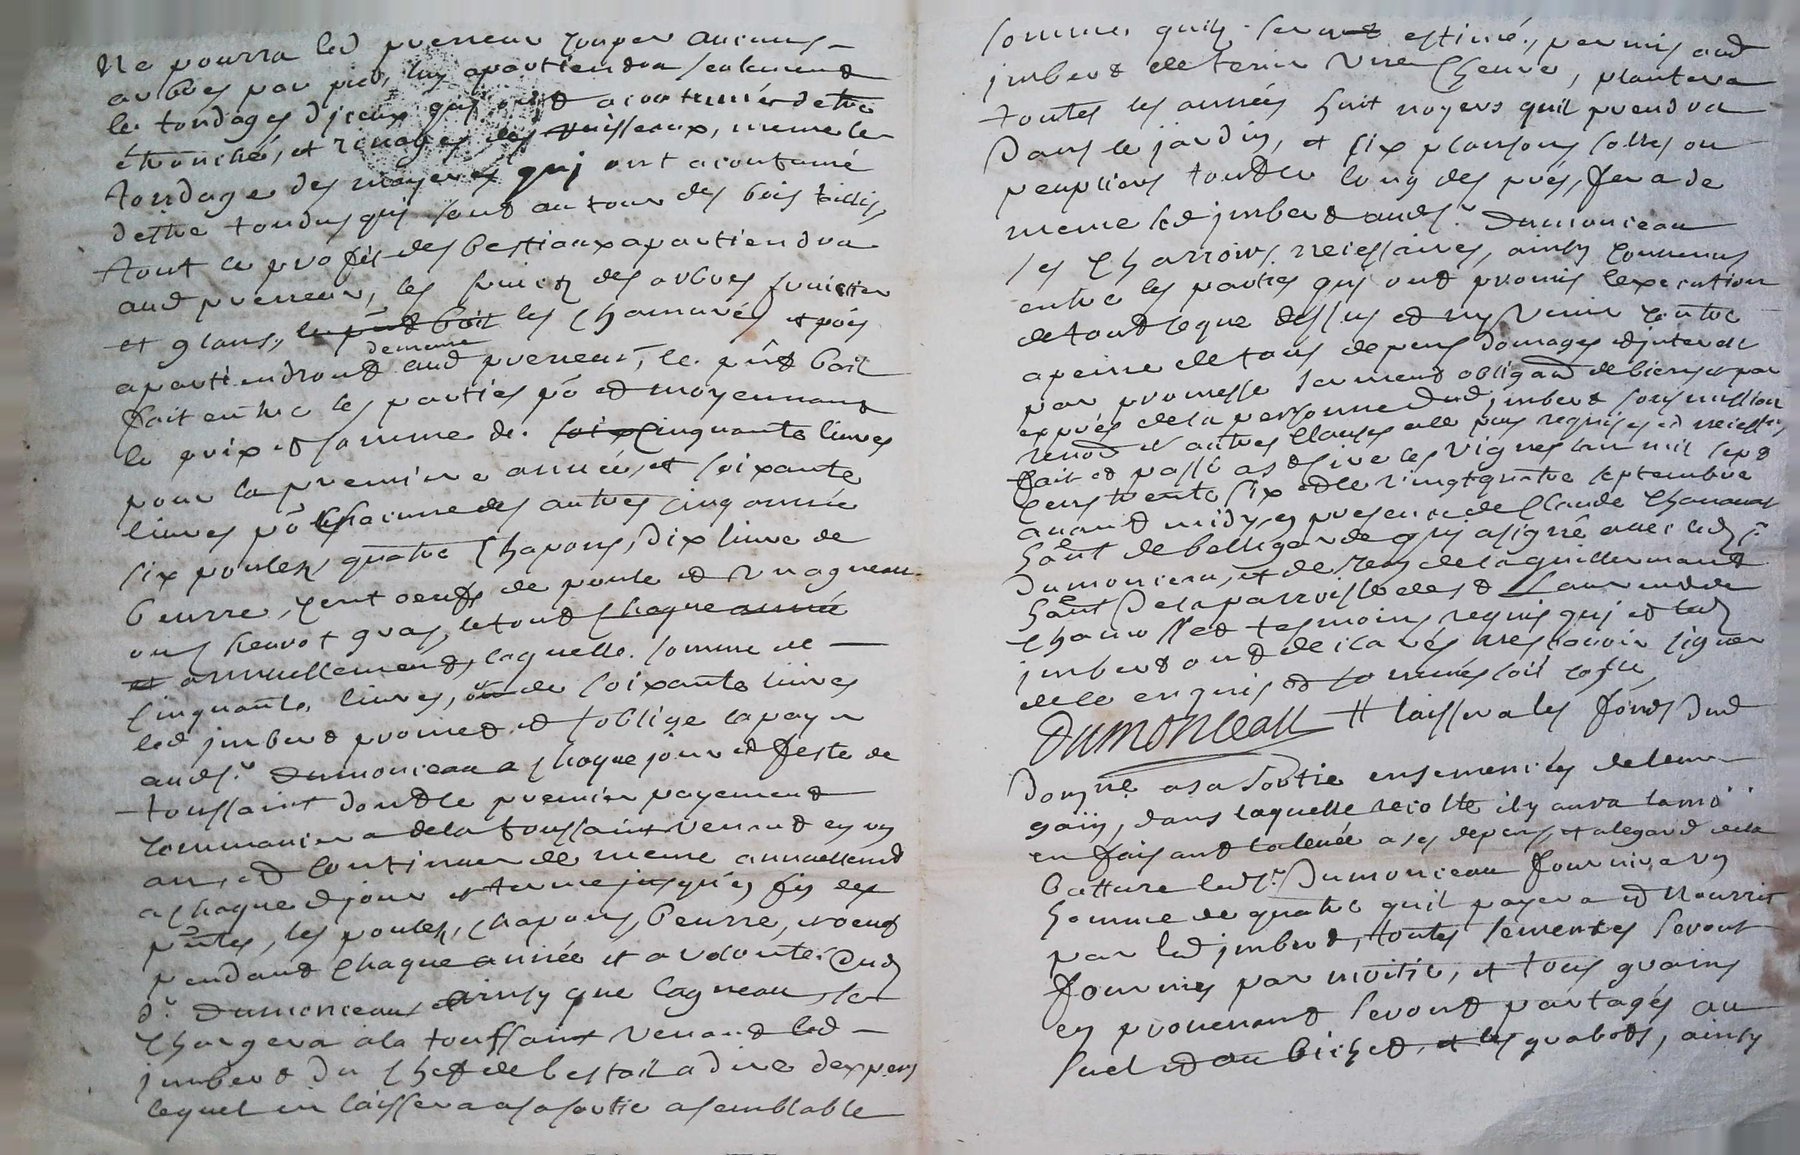 Ne pourra led preneur couper aucuns
arbres par pied, luy apartiendra seulement
les tondages diceux quj ont acoutumér detre
ébranchés, et rivages des ruisseaux, meme le
tondage des noyers quj ont acoutumé
destre tondus quj sont autour des bois taillis,
tout le profit des bestiaux apartiendra
aud preneur, les fruicts des arbres fruictier
et glans, le pñt bail les chanavés et pois
de meme
apartiendront aud preneur, le pñt bail
fait entre les parties po et moyennant
le prix et somme de soix Cinquante livres
pour la premiere année, et soixante
livres po chacune des autres cinq année
six poules, quatre chapons, dix livre de
beurre, cent oeufs de poule et un agneau
ou chevrot gras, le tout chaque année
et annuellement, laquelle somme de
Cinquante livres, ou de soixante livres
led jmbert promet et soblige la payer
aud sr. Dumonceau a chaque jour et feste de
toussaint dont le premier payement
commancera de la toussaint venant en un
an, et continuer de meme annuellemt
a chaque djour et terme jusqu'en fin des
pñtes, les poules, chapons, beurre, et oeufs
pendant chaque année et a volonté dud
Sr. Dumonceau ainsy que lagneau, se
chargera a la toussaint venant led
jmbert du chet de bestail a dire dexpers
lequel en laissera a sa sortie a semblable
somme quils seront estimé, permis aud
jmbert de tenir une chevre, plantera
toutes les années huit noyers quil prendra
dans le jardin, et six plansons solles ou
peupliers tout le long des prés, fera de
meme led jmbert aud sr. Dumonceau
les charrois necessaires, ainsy convenus
entre les parties quj ont promis lexecution
de tout ceque dessus et ny venir contre
a peine de tous depens domages et jnterest
par promesse serment obligaõn de biens et par
exprés de la personne dud jmbert soumission
renoõn et autres clauses a ce plus requises et necessres
fait et passé a st Cire les vignes lan mil sept
cens trente six et le vingt quatre septembre
avant midy, en presence de Claude Chanavat
hañt de bellegarde quj a signé avec led sr.
Dumonceau, et de Jean delaguillermant
hañt de la parroisse de st Laurent de
chamosset tesmoins requis quj et led
jmbert ont declarés ne scavoir signer
de ce enquis et sommés soit controllé
Dumonceau # laissera les fonds dud
domaine a sa sortie ensemencés de leur
gain, dans laquelle recolte il y aura la moi
en faisant la levée a ses depens, et alegard de la
batture led sr. Dumonceau fournira un
homme de quatre quil payera et nourris
par led jmbert, toutes semences seront
fournies par moitié, et tous grains
en provenant seront partagés au
suel et au bichet, et les grabots, ainsy